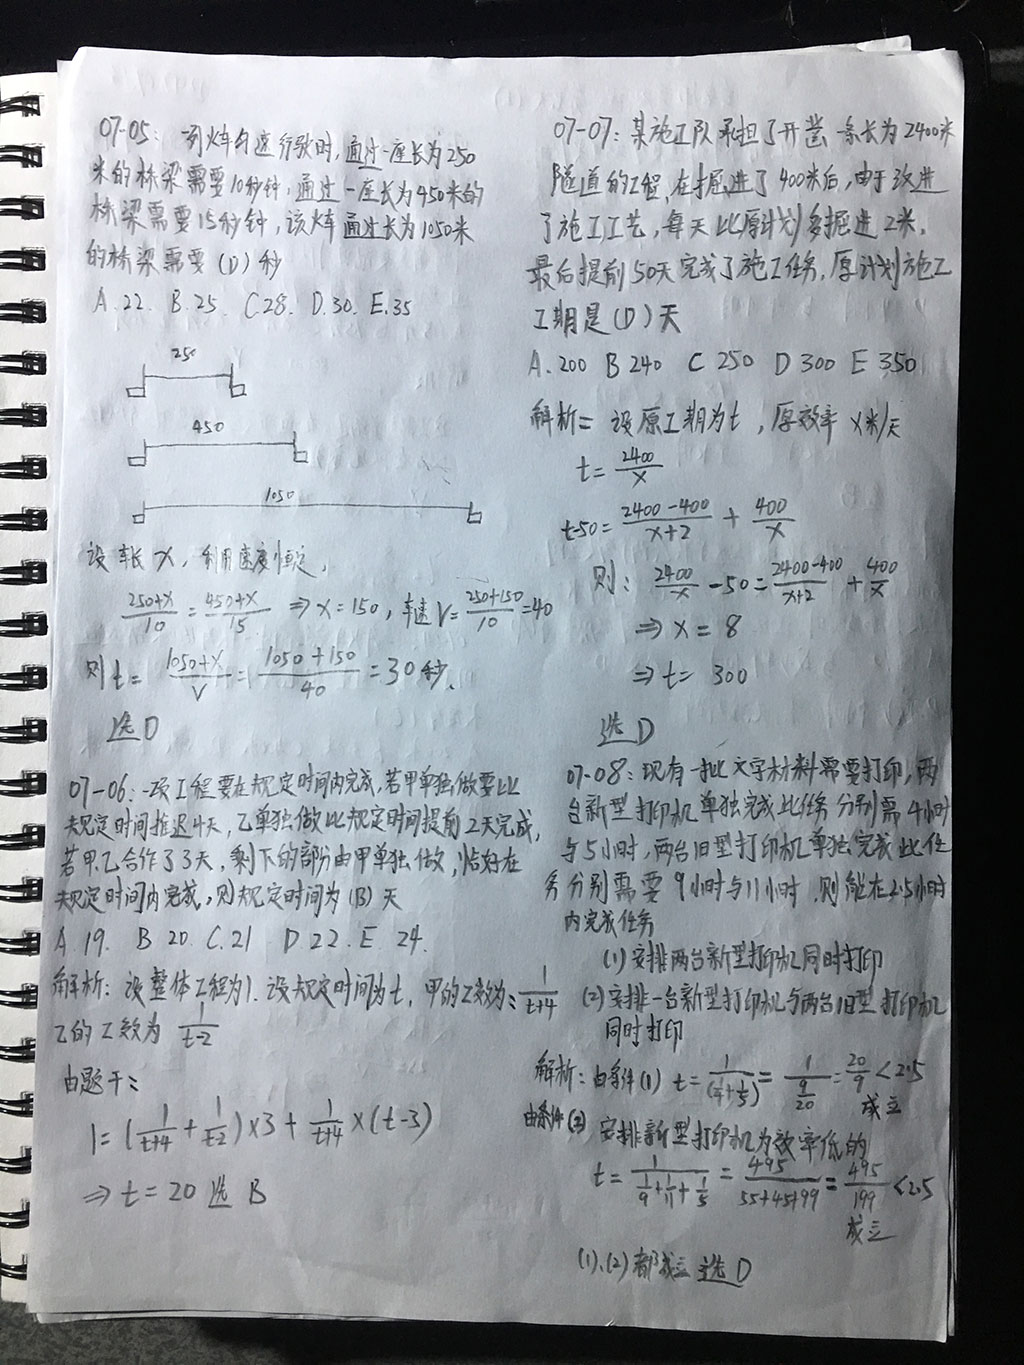 07-05: 一列火车匀速行驶时,通过一座长为250
米的桥梁需要10秒钟,通过一座长为450米的
桥梁需要15秒钟,该火车通过长为1050米
的桥梁需要(D)秒
A.22. B.25. C28. D.30. E.35
250
450
1050
设车长X,利用速度恒定,
(250+X)/10=(450+X)/15 ⇒X=150,车速V=(250+150)/10=40
则t=(1050+X)/V=(1050+150)/40=30秒.
选D
07-06:一项工程要在规定时间内完成,若甲单独做要比
规定时间推迟4天,乙单独做比规定时间提前2天完成,
若甲.乙合作了3天,剩下的部分由甲单独做,恰好在
规定时间内完成,则规定时间为(B)天
A 19. B 20. C.21 D 22. E. 24.
解析:设整体工程为1.设规定时间为t,甲的工效为:1/(t+4)
乙的工效为 1/(t-2)
由题干:
1=(1/(t+4)+1/(t-2))×3+1/(t+4)×(t-3)
⇒t=20 选 B
07-07:某施工队承担了开凿一条长为2400米
隧道的工程,在掘进了400米后,由于改进
了施工工艺,每天比原计划多掘进2米,
最后提前50天完成了施工任务,原计划施工
工期是(D)天
A.200 B 240 C 250 D 300 E 350
解析=设原工期为t,原效率X米/天
t=2400/X
t-50=(2400-400)/(X+2)+400/X
则:2400/X-50=(2400-400)/(X+2)+400/X
⇒X=8
⇒t=300
选D
07-08:现有一批文字材料需要打印,两
台新型打印机单独完成此任务分别需4小时
与5小时,两台旧型打印机单独完成此任
务分别需要9小时与11小时.则能在2.5小时
内完成任务
(1)安排两台新型打印机同时打印
(2)安排一台新型打印机与两台旧型打印机
同时打印
解析:由条件(1) t=1/(1/4+1/5)=1/(9/20)=20/9<2.5
成立
由条件(2)安排新型打印机为效率低的
t=1/(1/9+1/11+1/5)=495/(55+45+99)=495/199<2.5
成立
(1).(2)都成立 选D